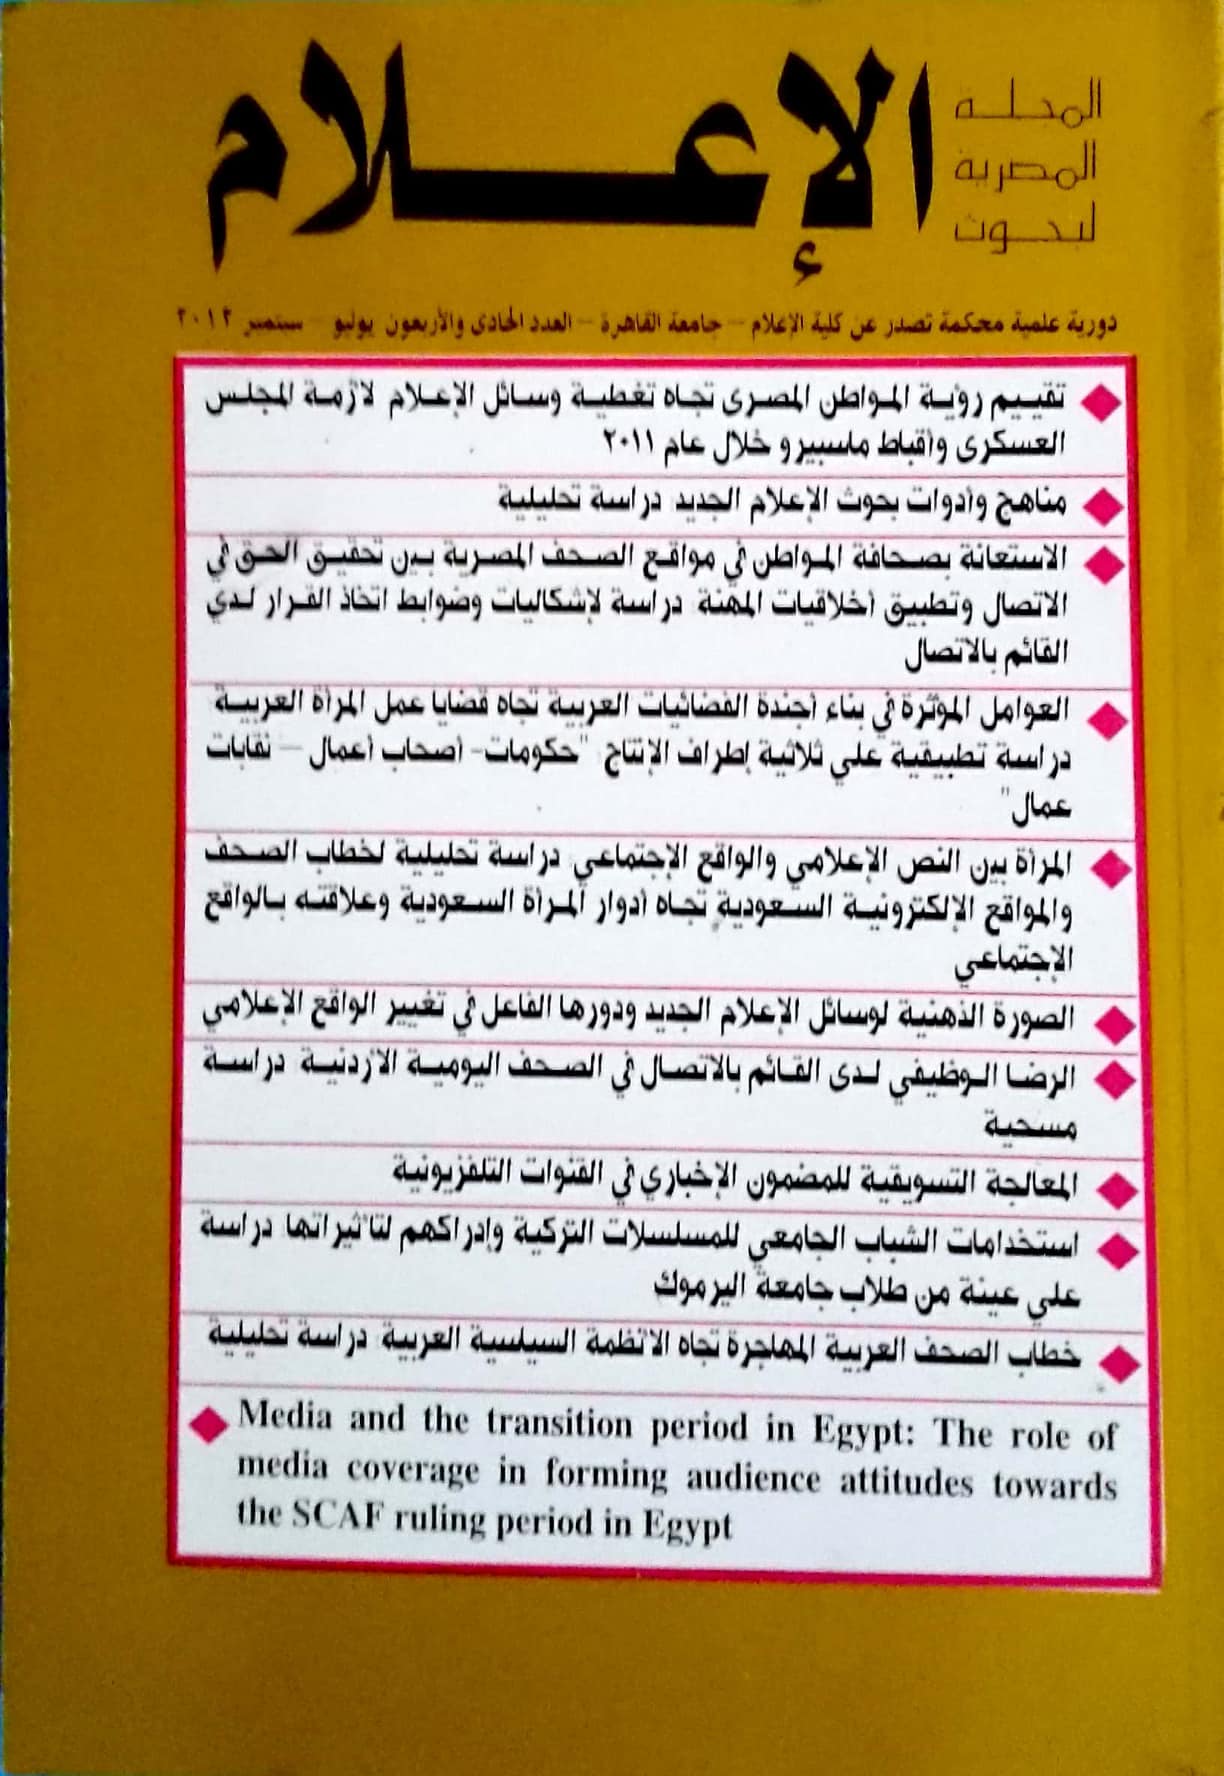 المجلة
المصرية
لبحوث
الإعلام
دورية علمية محكمة تصدر عن كلية الإعلام – جامعة القاهرة – العدد الحادى والأربعون يوليو – سبتمبر ٢٠١٢
تقييم رؤية المواطن المصرى تجاه تغطية وسائل الإعلام لأزمة المجلس
العسكرى وأقباط ماسبيرو خلال عام ٢٠١١
مناهج وأدوات بحوث الإعلام الجديد دراسة تحليلية
الاستعانة بصحافة المواطن في مواقع الصحف المصرية بين تحقيق الحق في
الاتصال وتطبيق أخلاقيات المهنة دراسة لإشكاليات وضوابط اتخاذ القرار لدي
القائم بالاتصال
العوامل المؤثرة في بناء أجندة الفضائيات العربية تجاه قضايا عمل المرأة العربية
دراسة تطبيقية علي ثلاثية إطراف الإنتاج "حكومات- أصحاب أعمال – نقابات
عمال"
المرأة بين النص الإعلامي والواقع الإجتماعي دراسة تحليلية لخطاب الصحف
والمواقع الإلكترونية السعودية تجاه أدوار المرأة السعودية وعلاقته بالواقع
الإجتماعي
الصورة الذهنية لوسائل الإعلام الجديد ودورها الفاعل في تغيير الواقع الإعلامي
الرضا الوظيفي لدى القائم بالاتصال في الصحف اليومية الأردنية دراسة
مسحية
المعالجة التسويقية للمضمون الإخباري في القنوات التلفزيونية
استخدامات الشباب الجامعي للمسلسلات التركية وإدراكهم لتأثيراتها دراسة
علي عينة من طلاب جامعة اليرموك
خطاب الصحف العربية المهاجرة تجاه الأنظمة السياسية العربية دراسة تحليلية
Media and the transition period in Egypt: The role of
media coverage in forming audience attitudes towards
the SCAF ruling period in Egypt